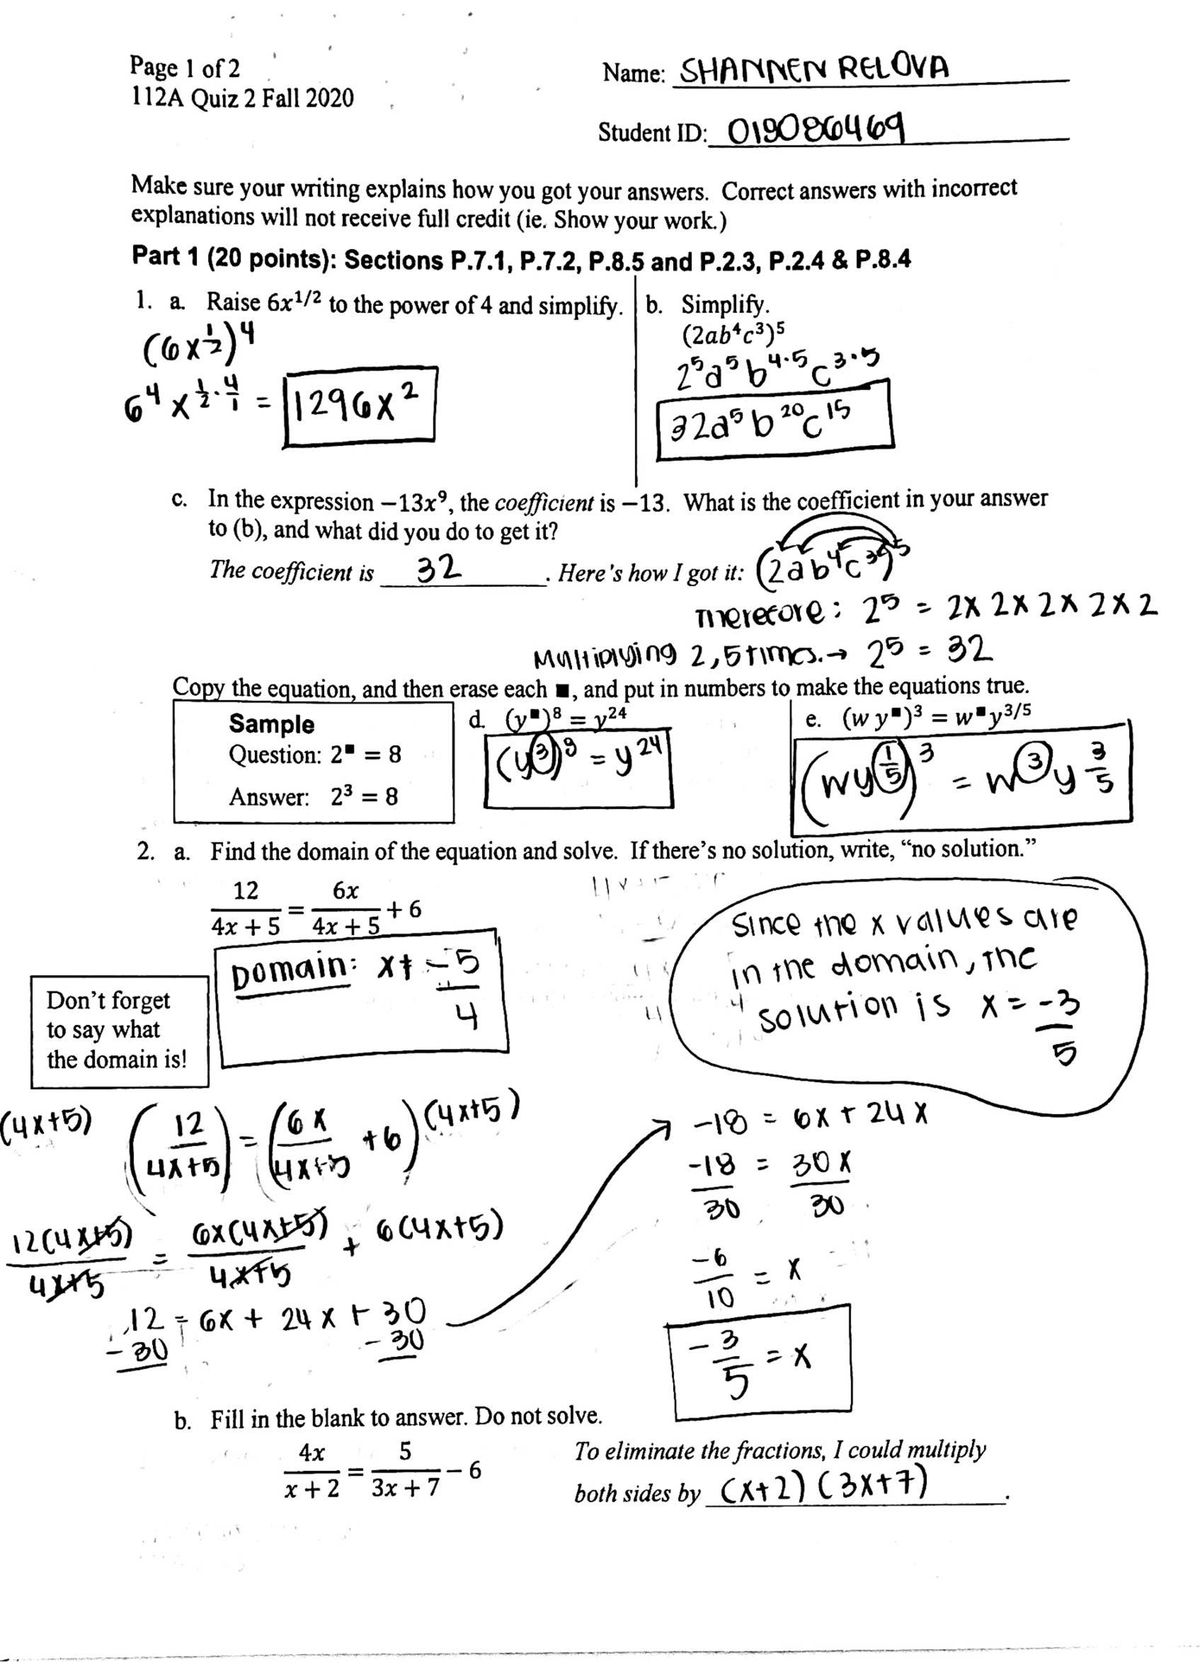 Page 1 of 2
112A Quiz 2 Fall 2020
Name: SHANNEN RELOVA
Student ID: 0190860469
Make sure your writing explains how you got your answers. Correct answers with incorrect
explanations will not receive full credit (ie. Show your work.)
Part 1 (20 points): Sections P.7.1, P.7.2, P.8.5 and P.2.3, P.2.4 & P.8.4
1. a. Raise 6x^1/2 to the power of 4 and simplify.
(6x^1/2)^4
6^4 x^1/2·4/1 = 1296x^2
b. Simplify.
(2ab⁴c³)⁵
2^5 a^5 b^4·5 c^3·5
32a^5 b^20 c^15
c. In the expression −13x⁹, the coefficient is −13. What is the coefficient in your answer
to (b), and what did you do to get it?
The coefficient is 32. Here's how I got it: (2ab^4c^3)^5
Therefore: 2^5 = 2x2x2x2x2
Multiplying 2, 5 times. → 2^5 = 32
Copy the equation, and then erase each ■, and put in numbers to make the equations true.
Sample
Question: 2^■ = 8
Answer: 2³ = 8
d. (y^■)^8 = y^24
(y^3)^8 = y^24
e. (w y^■)^3 = w^■y^3/5
(wy^1/5)^3 = w^3y^3/5
2. a. Find the domain of the equation and solve. If there's no solution, write, "no solution."
12/4x + 5 = 6x/4x + 5 + 6
Domain: x ≠ -5/4
Don't forget
to say what
the domain is!
Since the x values are
in the domain, the
solution is x = -3/5
(4x+5) (12/4x+5) = (6x/4x+5 +6) (4x+5)
12(4x+5)/4x+5 = 6x(4x+5)/4x+5 + 6(4x+5)
12 = 6x + 24x + 30
-30 -30
-18 = 6x + 24x
-18/30 = 30x/30
-6/10 = x
-3/5 = x
b. Fill in the blank to answer. Do not solve.
4x/x + 2 = 5/3x + 7 − 6
To eliminate the fractions, I could multiply
both sides by (x+2)(3x+7).